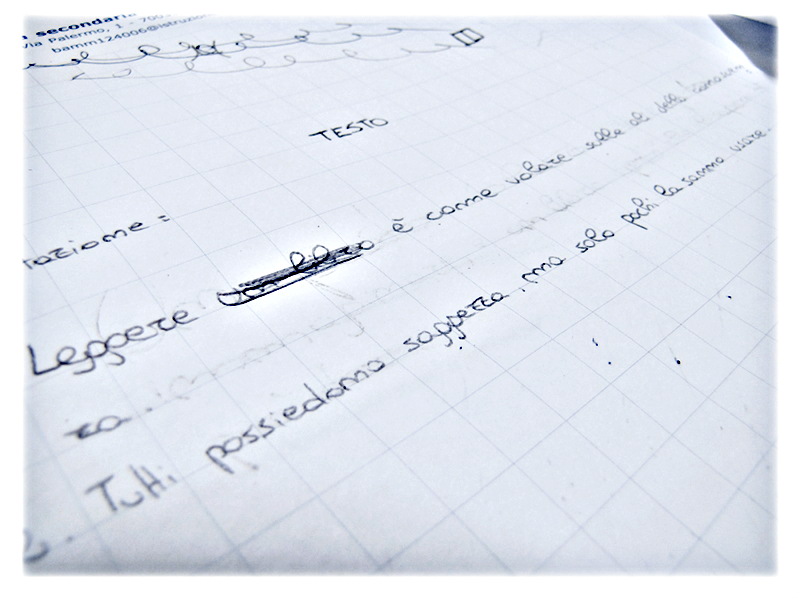 secondaria
Via Palermo, 1 - 700
bamm124006@istruzio
TESTO
tazione :
Leggere un libro è come volare sulle ali della conoscen
za.
Tutti possiedono saggezza, ma solo pochi la sanno usare.